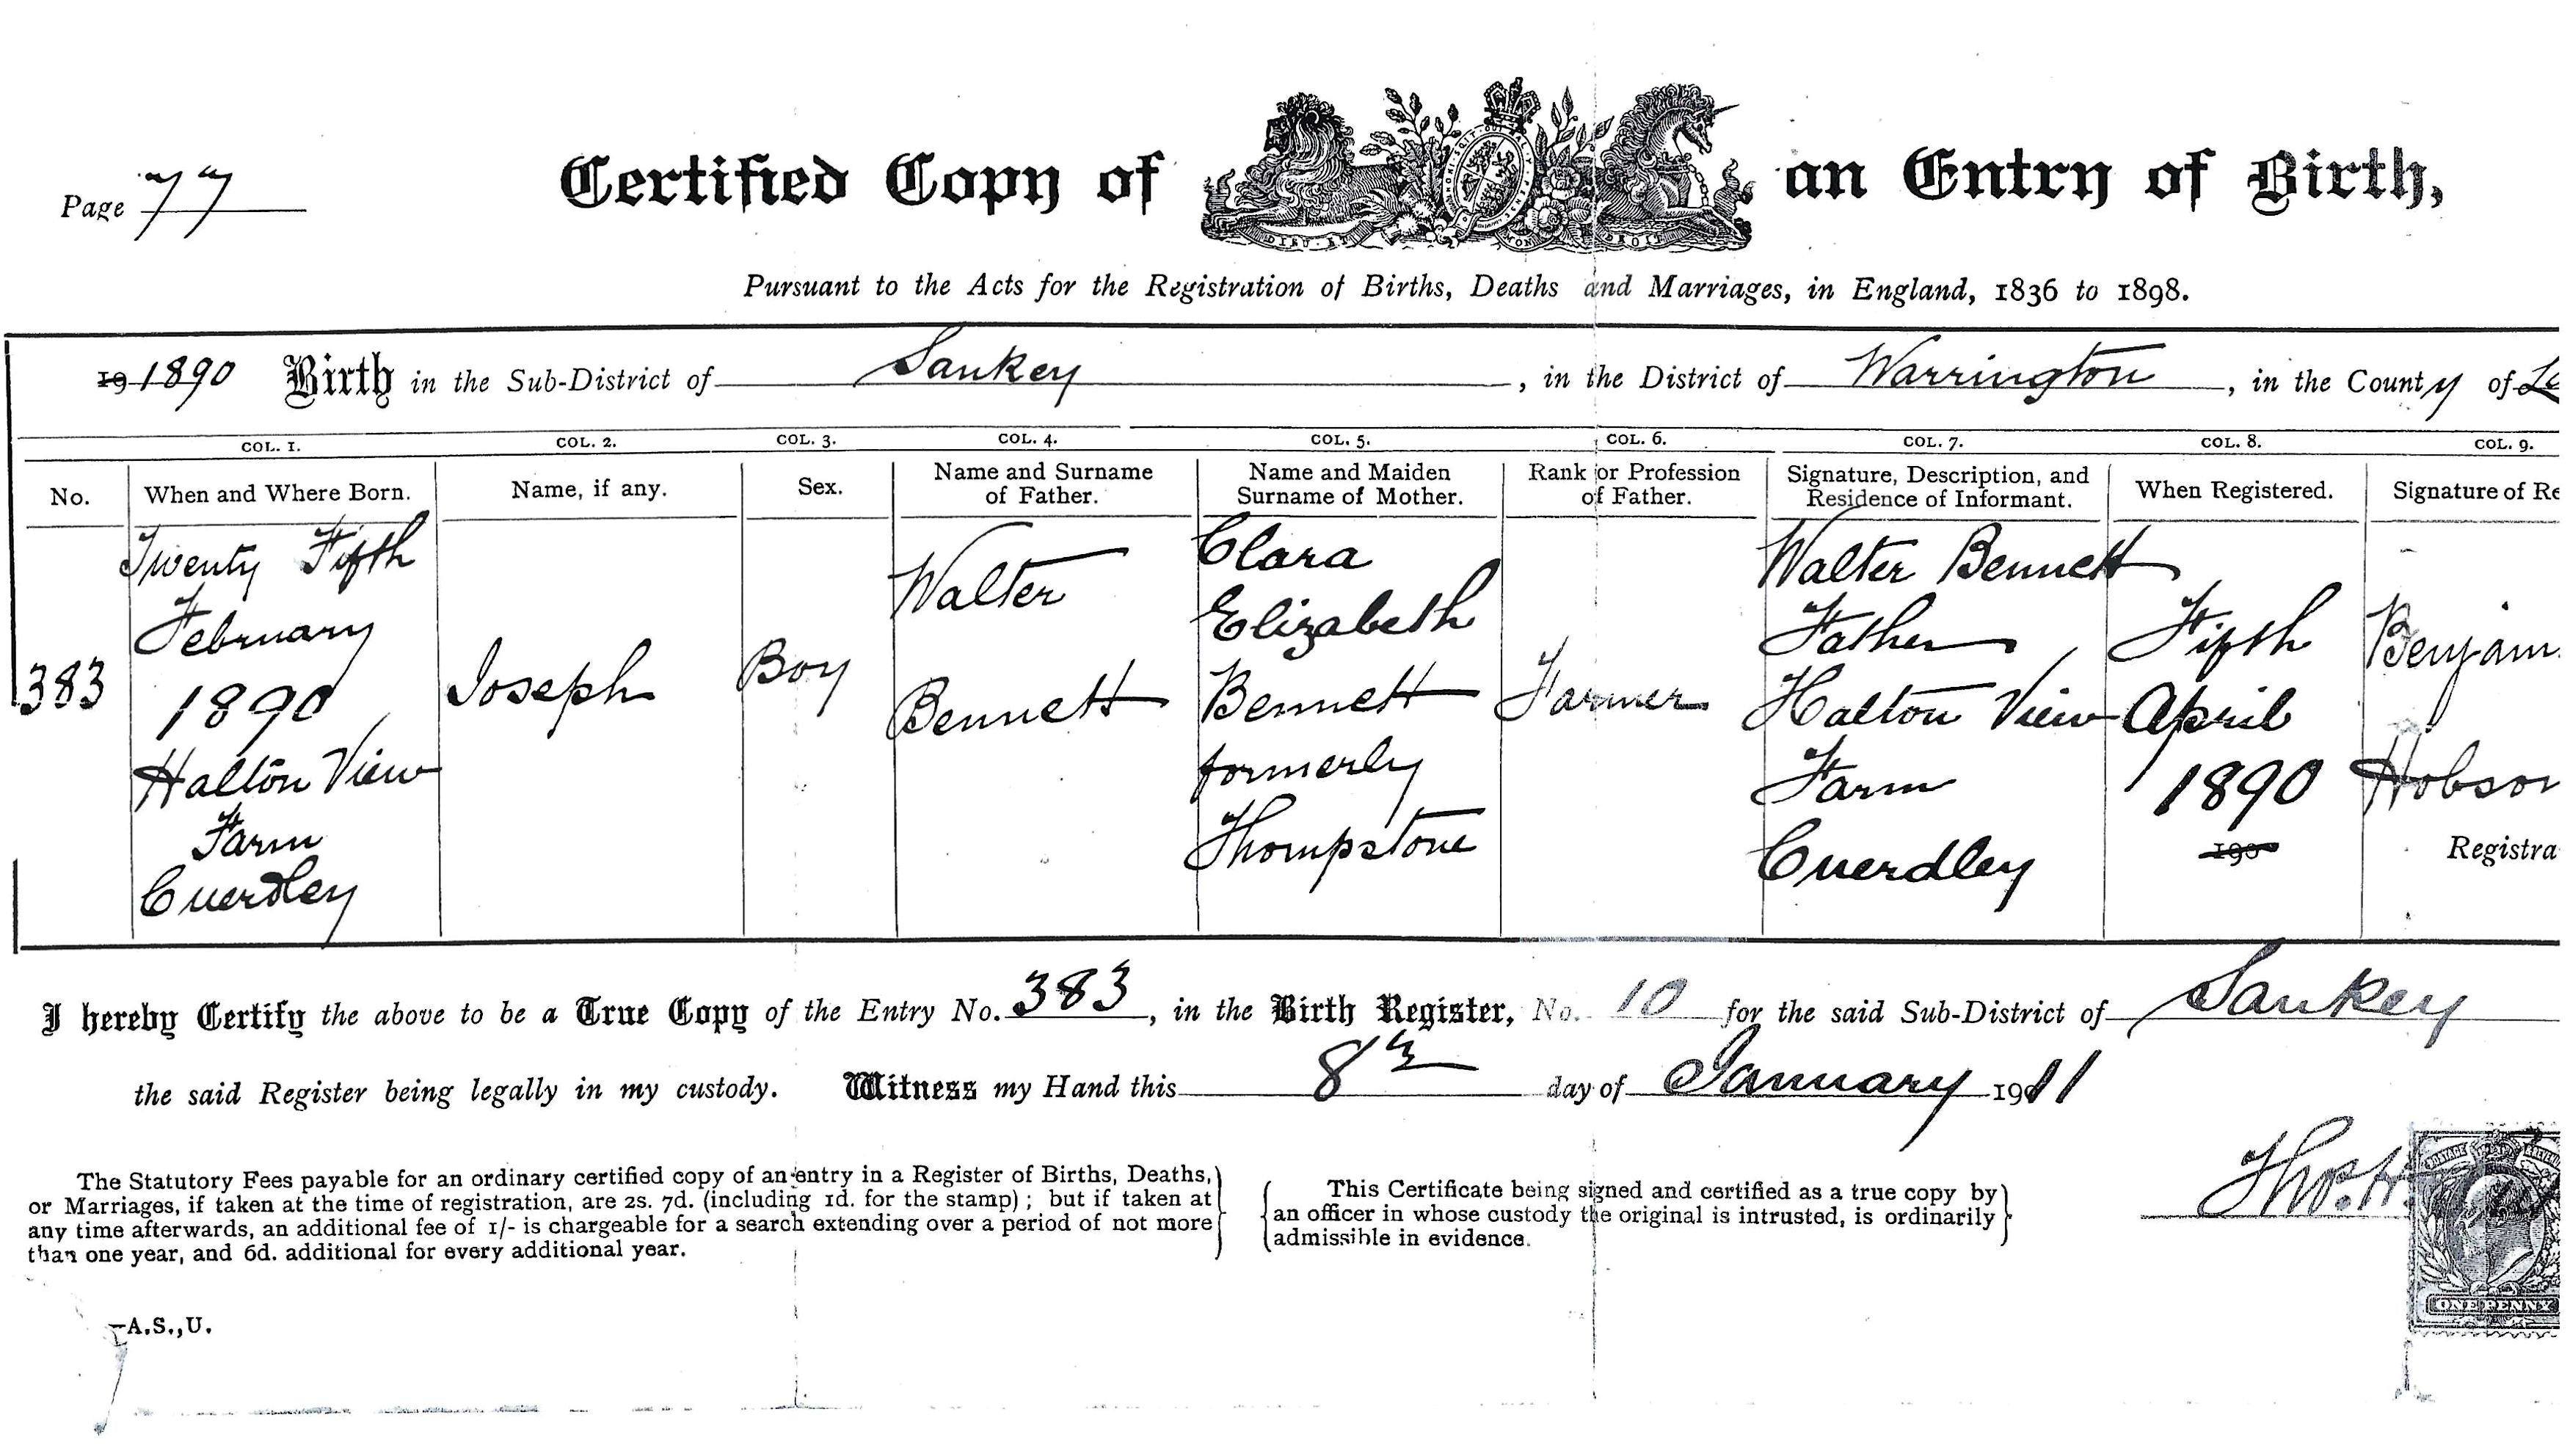 Page 77
Certified Copy of an Entry of Birth,
DIEU·ET MON DROIT
Pursuant to the Acts for the Registration of Births, Deaths and Marriages, in England, 1836 to 1898.
19 1890 Birth in the Sub-District of Sankey, in the District of Warrington, in the County of
COL. 1. COL. 2. COL. 3. COL. 4. COL. 5. COL. 6. COL. 7. COL. 8. COL. 9.
No.
When and Where Born.
Name, if any.
Sex.
Name and Surname
of Father.
Name and Maiden
Surname of Mother.
Rank or Profession
of Father.
Signature, Description, and
Residence of Informant.
When Registered.
Signature of Re
383
Twenty Fifth
February
1890
Halton View
Farm
Cuerdley
Joseph
Boy
Walter
Bennett
Clara
Elizabeth
Bennett
formerly
Thompstone
Farmer
Walter Bennett
Father
Halton View
Farm
Cuerdley
Fifth
April
1890
190
Benjam
Hobson
Registra
I hereby Certify the above to be a True Copy of the Entry No. 383, in the Birth Register, No. 10 for the said Sub-District of Sankey
the said Register being legally in my custody. Witness my Hand this 8th day of January 1911
The Statutory Fees payable for an ordinary certified copy of an entry in a Register of Births, Deaths,
or Marriages, if taken at the time of registration, are 2s. 7d. (including 1d. for the stamp); but if taken at
any time afterwards, an additional fee of 1/- is chargeable for a search extending over a period of not more
than one year, and 6d. additional for every additional year.
This Certificate being signed and certified as a true copy by
an officer in whose custody the original is intrusted, is ordinarily
admissible in evidence.
Thos. H
POSTAGE
ONE PENNY
A.S.,U.